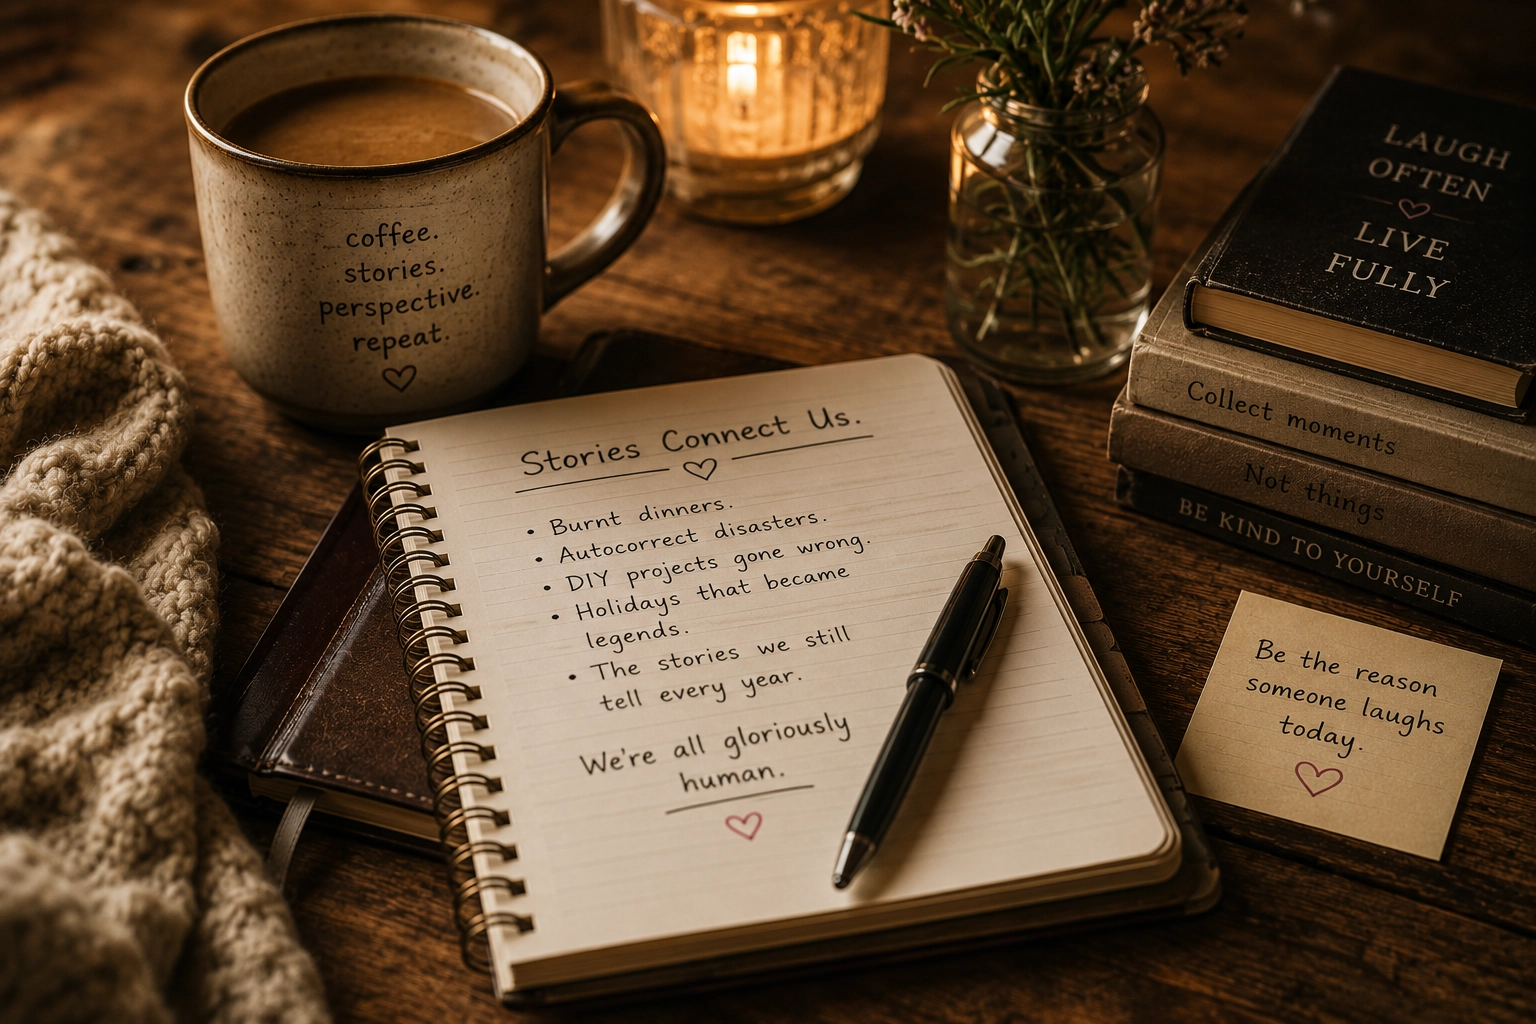 coffee.
stories.
perspective.
repeat.
Stories Connect Us.
• Burnt dinners.
• Autocorrect disasters.
• DIY projects gone wrong.
• Holidays that became
legends.
• The stories we still
tell every year.
We're all gloriously
human.
LAUGH
OFTEN
LIVE
FULLY
Collect moments
Not things
BE KIND TO YOURSELF
Be the reason
someone laughs
today.